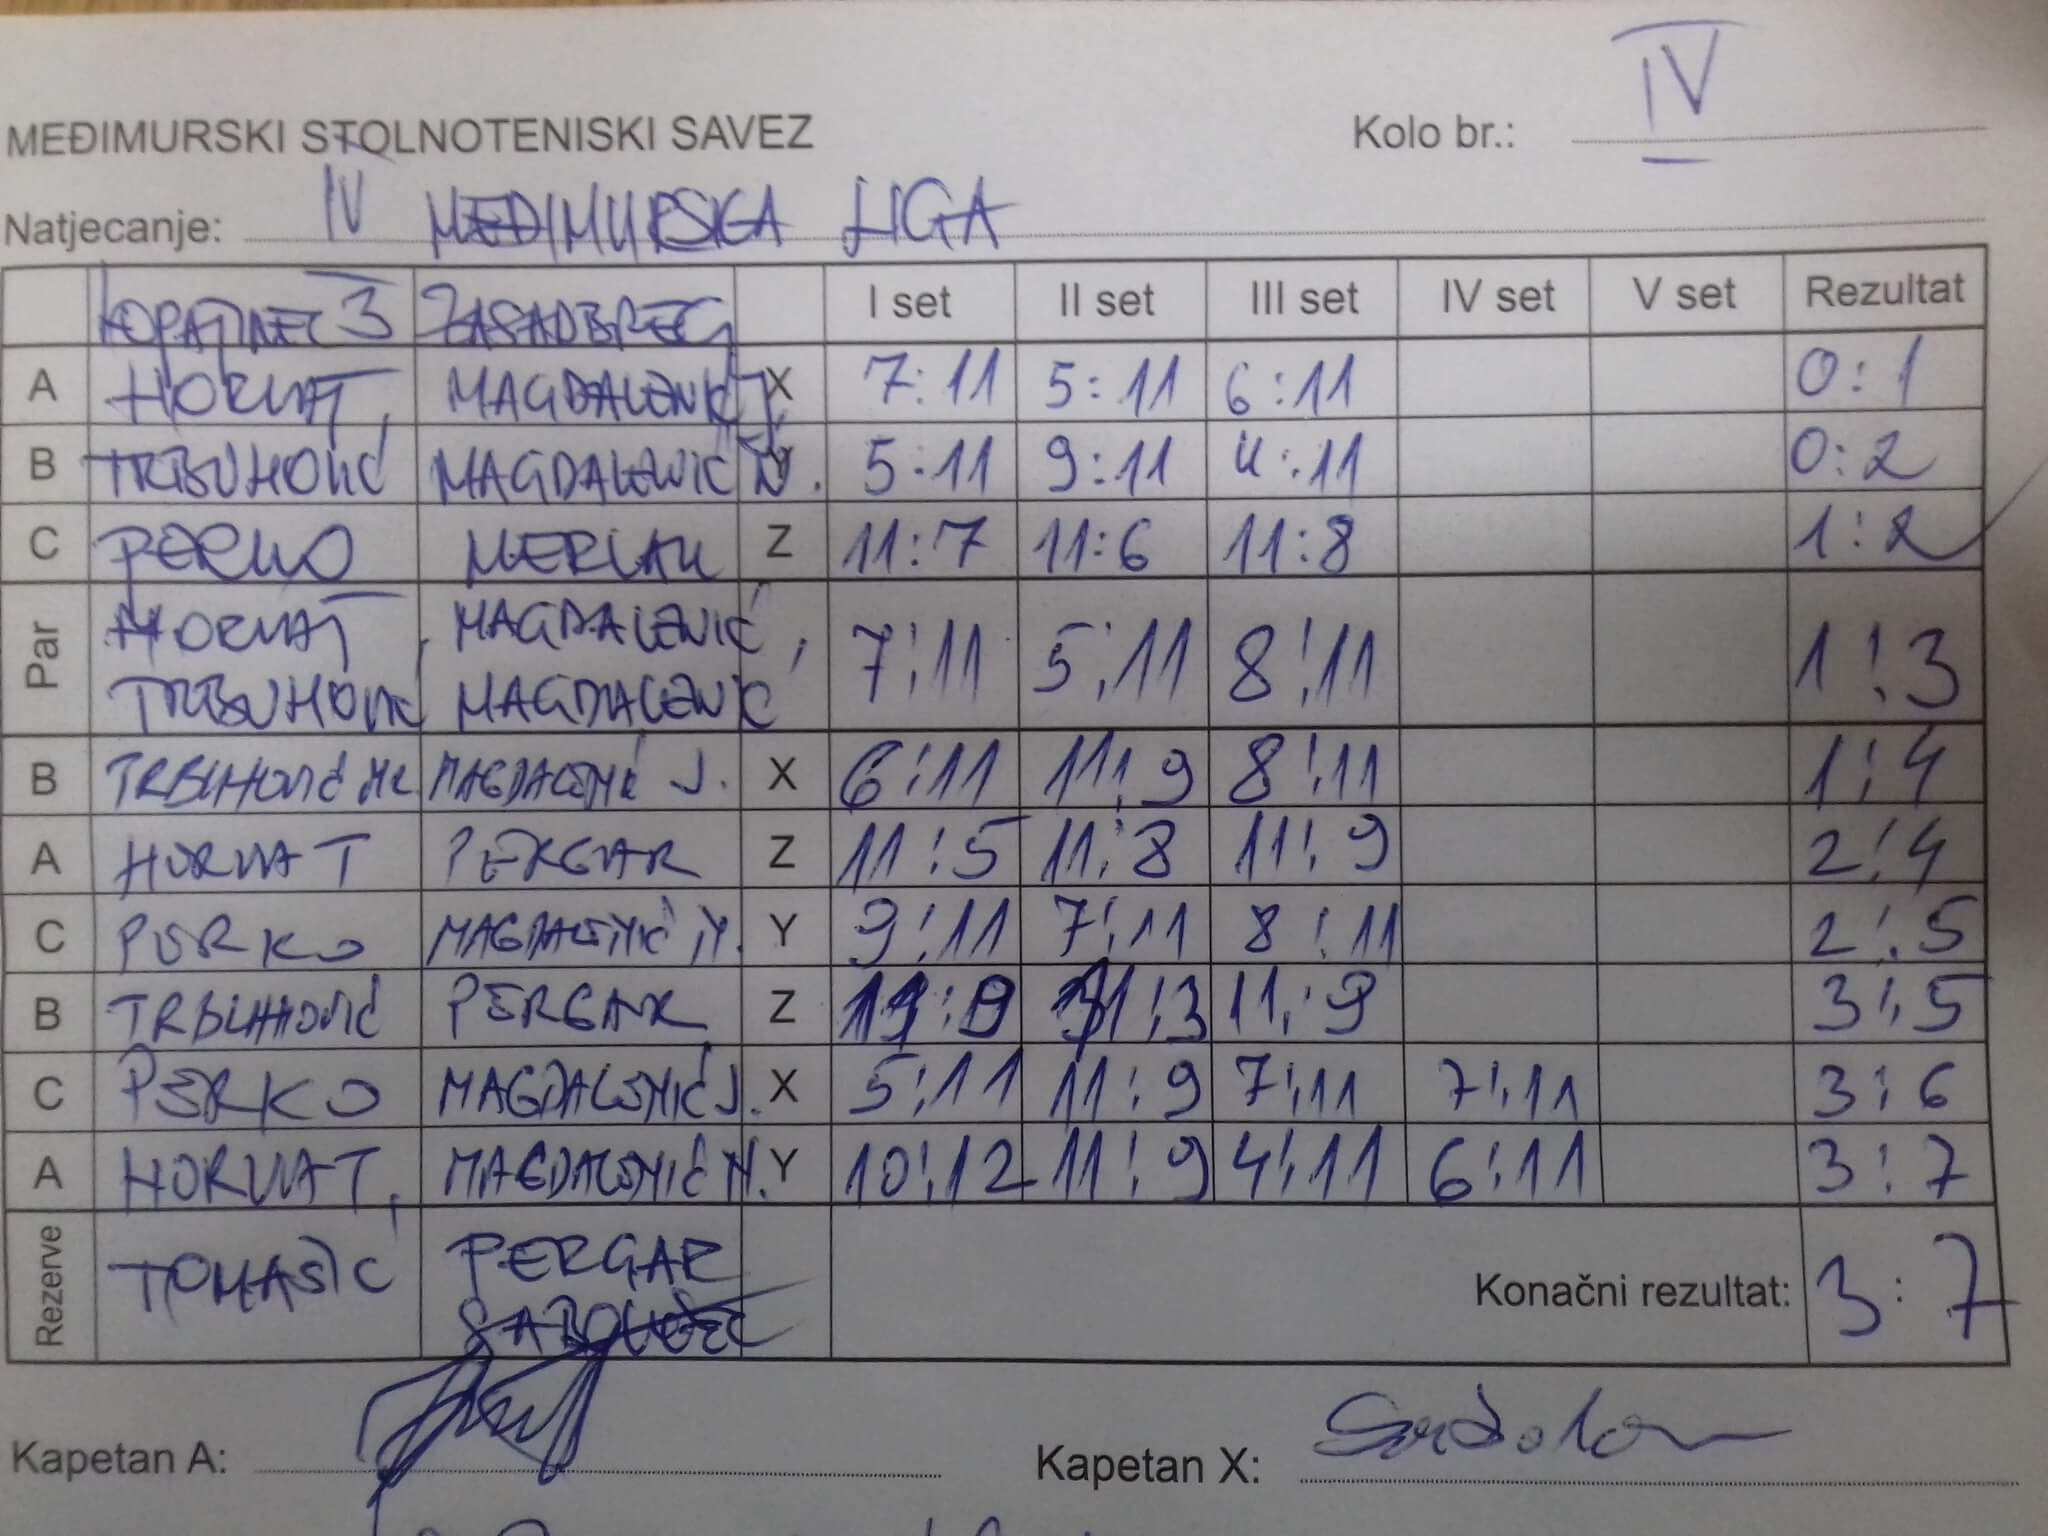 IV
MEĐIMURSKI STOLNOTENISKI SAVEZ Kolo br.:
Natjecanje: IV MEĐIMURSKA LIGA
LOPATINEC 3 ZASADBREG I set II set III set IV set V set Rezultat
A HORVAT, MAGDALENIĆ J. X 7:11 5:11 6:11 0:1
B TRBUHOVIĆ MAGDALENIĆ N. Y 5:11 9:11 4:11 0:2
C PERKO MERLAK Z 11:7 11:6 11:8 1:2
Par HORVAT, MAGDALENIĆ, 7:11 5:11 8:11 1:3
TRBUHOVIĆ MAGDALENIĆ
B TRBUHOVIĆ MAGDALENIĆ J. X 6:11 11:9 8:11 1:4
A HORVAT PERGAR Z 11:5 11:8 11:9 2:4
C PERKO MAGDALENIĆ N. Y 9:11 7:11 8:11 2:5
B TRBUHOVIĆ PERGAR Z 11:3 11:9 3:5
C PERKO MAGDALENIĆ J. X 5:11 11:9 7:11 7:11 3:6
A HORVAT, MAGDALENIĆ N. Y 10:12 11:9 4:11 6:11 3:7
Rezerve TOMAŠIĆ PERGAR Konačni rezultat: 3:7
Kapetan A: Kapetan X: